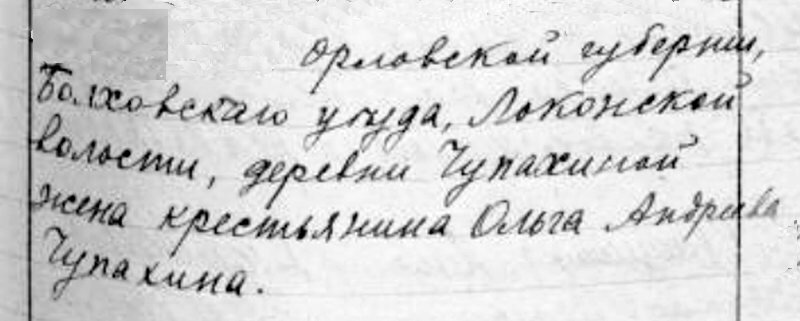 Орловской губернии,
Болховскаго уѣзда, Локонской
волости, деревни Чупахиной
жена крестьянина Ольга Андреева
Чупахина.